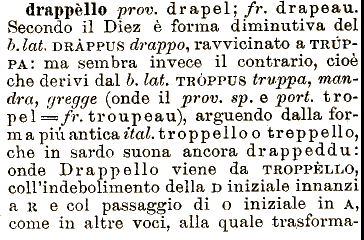 drappèllo prov. drapel; fr. drapeau.
Secondo il Diez è forma diminutiva del
b. lat. DRÀPPUS drappo, ravvicinato a TRÚP-
PA: ma sembra invece il contrario, cioè
che derivi dal b. lat. TRÒPPUS truppa, man-
dra, gregge (onde il prov. sp. e port. tro-
pel = fr. troupeau), arguendo dalla for-
ma piú antica ital. troppello o treppello,
che in sardo suona ancora drappeddu:
onde Drappello viene da TROPPÈLLO,
coll'indebolimento della D iniziale innanzi
a R e col passaggio di O iniziale in A,
come in altre voci, alla quale trasforma-